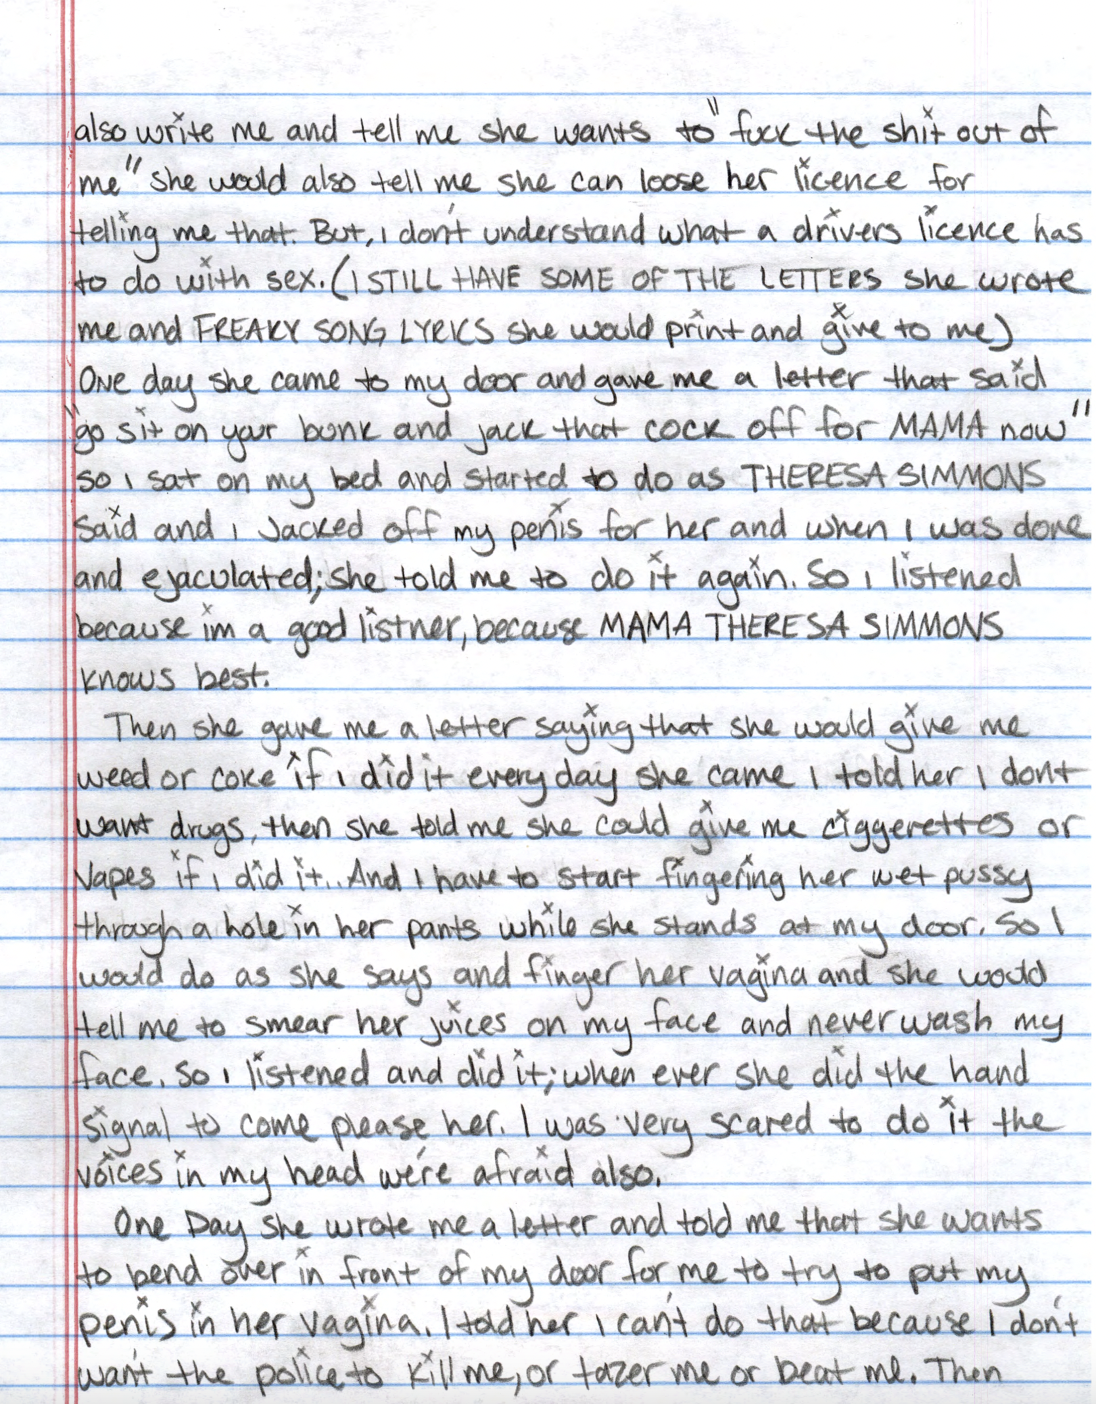 also write me and tell me she wants to "fuck the shit out of
me" she would also tell me she can loose her licence for
telling me that. But, i don't understand what a drivers licence has
to do with sex. (I STILL HAVE SOME OF THE LETTERS she wrote
me and FREAKY SONG LYRICS she would print and give to me)
ONE day she came to my door and gave me a letter that said
"go sit on your bunk and jack that cock off for MAMA now"
so i sat on my bed and started to do as THERESA SIMMONS
said and i Jacked off my penis for her and when I was done
and ejaculated; she told me to do it again. So i listened
because im a good listner, because MAMA THERESA SIMMONS
knows best.
Then she gave me a letter saying that she would give me
weed or coke if i did it every day she came I told her I dont
want drugs, then she told me she could give me ciggerettes or
vapes if i did it.. And I have to start fingering her wet pussy
through a hole in her pants while she stands at my door. So I
would do as she says and finger her vagina and she would
tell me to smear her juices on my face and never wash my
face. So i listened and did it; when ever she did the hand
signal to come please her. I was very scared to do it the
voices in my head we're afraid also.
One Day she wrote me a letter and told me that she wants
to bend over in front of my door for me to try to put my
penis in her vagina. I told her i can't do that because I don't
want the police to kill me, or tazer me or beat me. Then